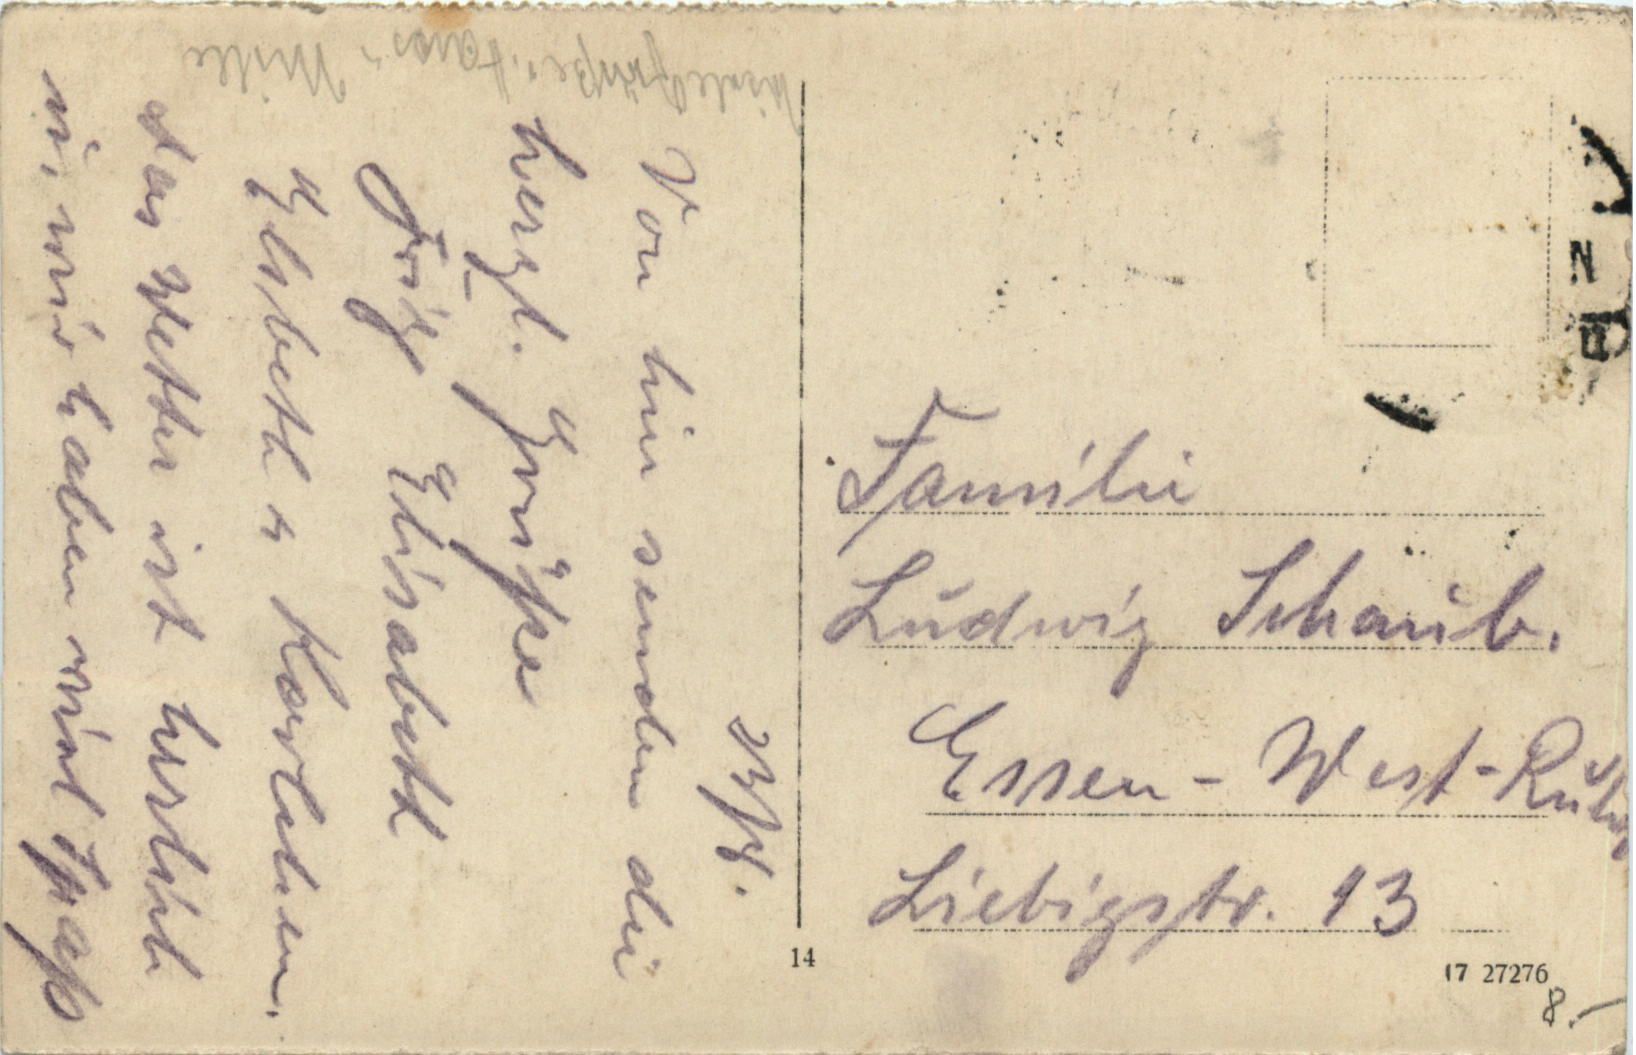 Von hier senden die
herzl. Grüße
Fritz Elisabeth
Elsbeth u Karlchen.
das Wetter ist herrlich
u. wir haben viel Spaß
viele Grüße
Familie
Ludwig Schaub.
Essen - West - Ruhr
Liebigstr. 13
14
17 27276
8.-